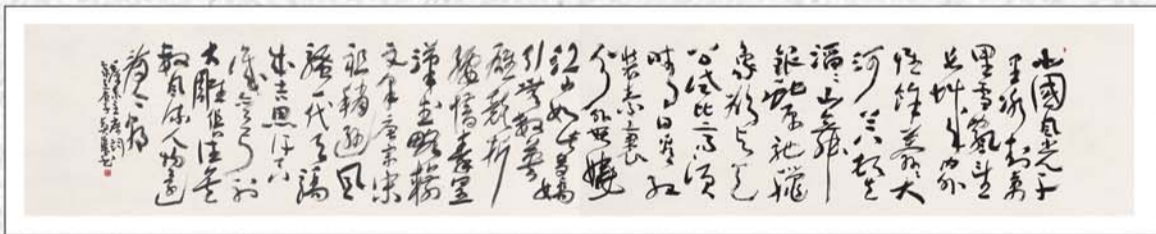 北國風光千
里冰封萬
里雪飄望
長城內外
惟餘莽莽大
河上下頓失
滔滔山舞
銀蛇原馳蠟
象欲與天
公試比高須
晴日看紅
裝素裹
分外妖嬈
江山如此多嬌
引無數英
雄競折
腰惜秦皇
漢武略輸
文采唐宗宋
祖稍遜風
騷一代天驕
成吉思汗只
識彎弓射
大雕俱往矣
數風流人物還
看今朝